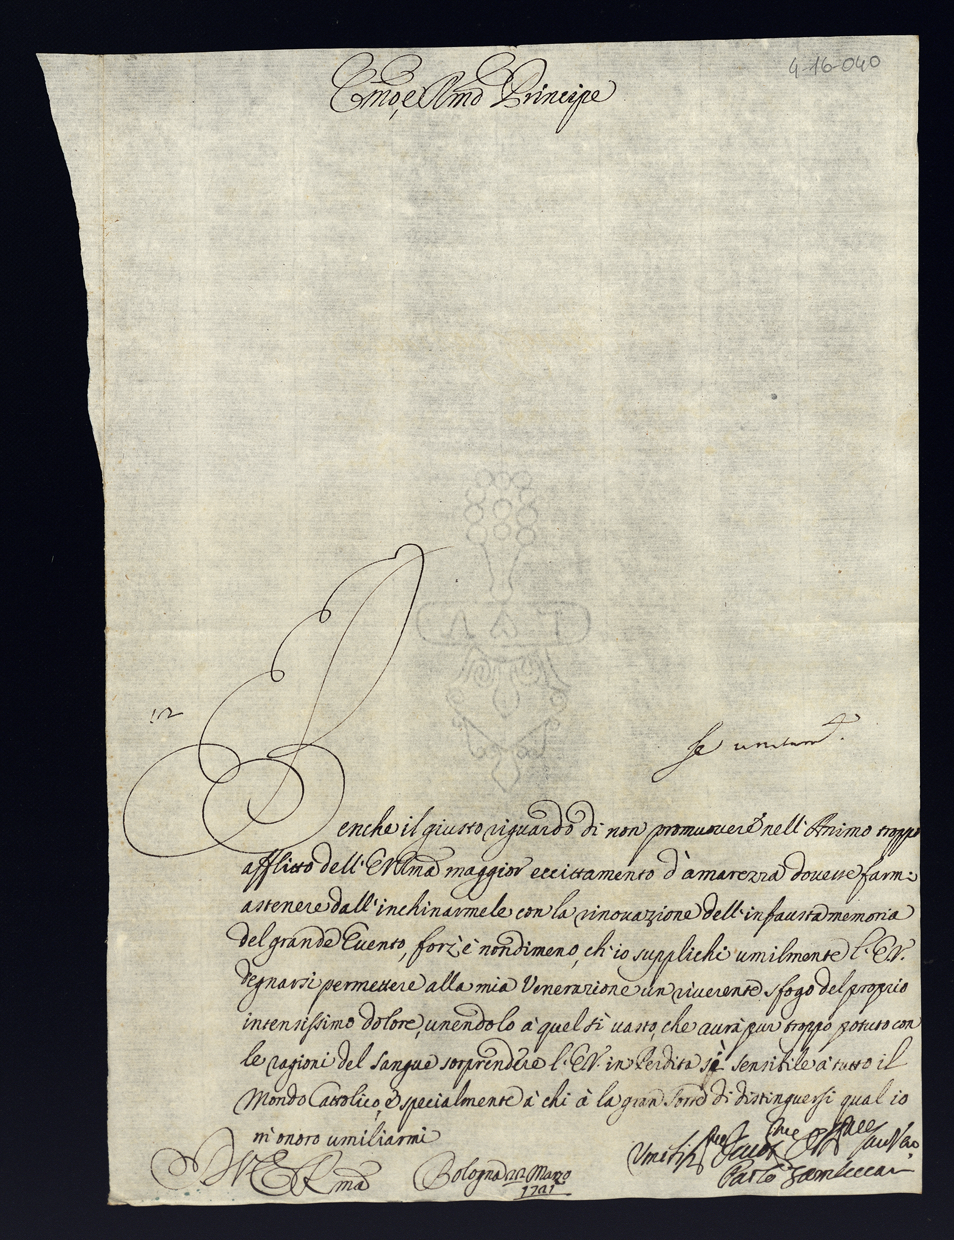 4-16-040
Emo, e Rmo Principe
Se umilam.
Benche il giusto riguardo di non promuovere nell'Animo troppo
afflitto dell'EV Rma maggior eccittamento d'amarezza dovesse farmi
astenere dall'inchinarmele con la rinovazione dell'infausta memoria
del grande Evento, forz'è nondimeno, ch'io supplichi umilmente l'EV.
degnarsi permettere alla mia Venerazione un riverente sfogo del proprio
intensissimo dolore, unendolo à quel sì vasto, che aurà pur troppo potuto con
le ragioni del sangue sorprendere l'EV. in Perdita sì sensibile à tutto il
Mondo Cattolico, e specialmente à chi à la gran sorte di distinguersi qual io
m'onoro umiliarmi
D V E Rma
Bologna 22 Marzo
1721
Paolo Zambeccari